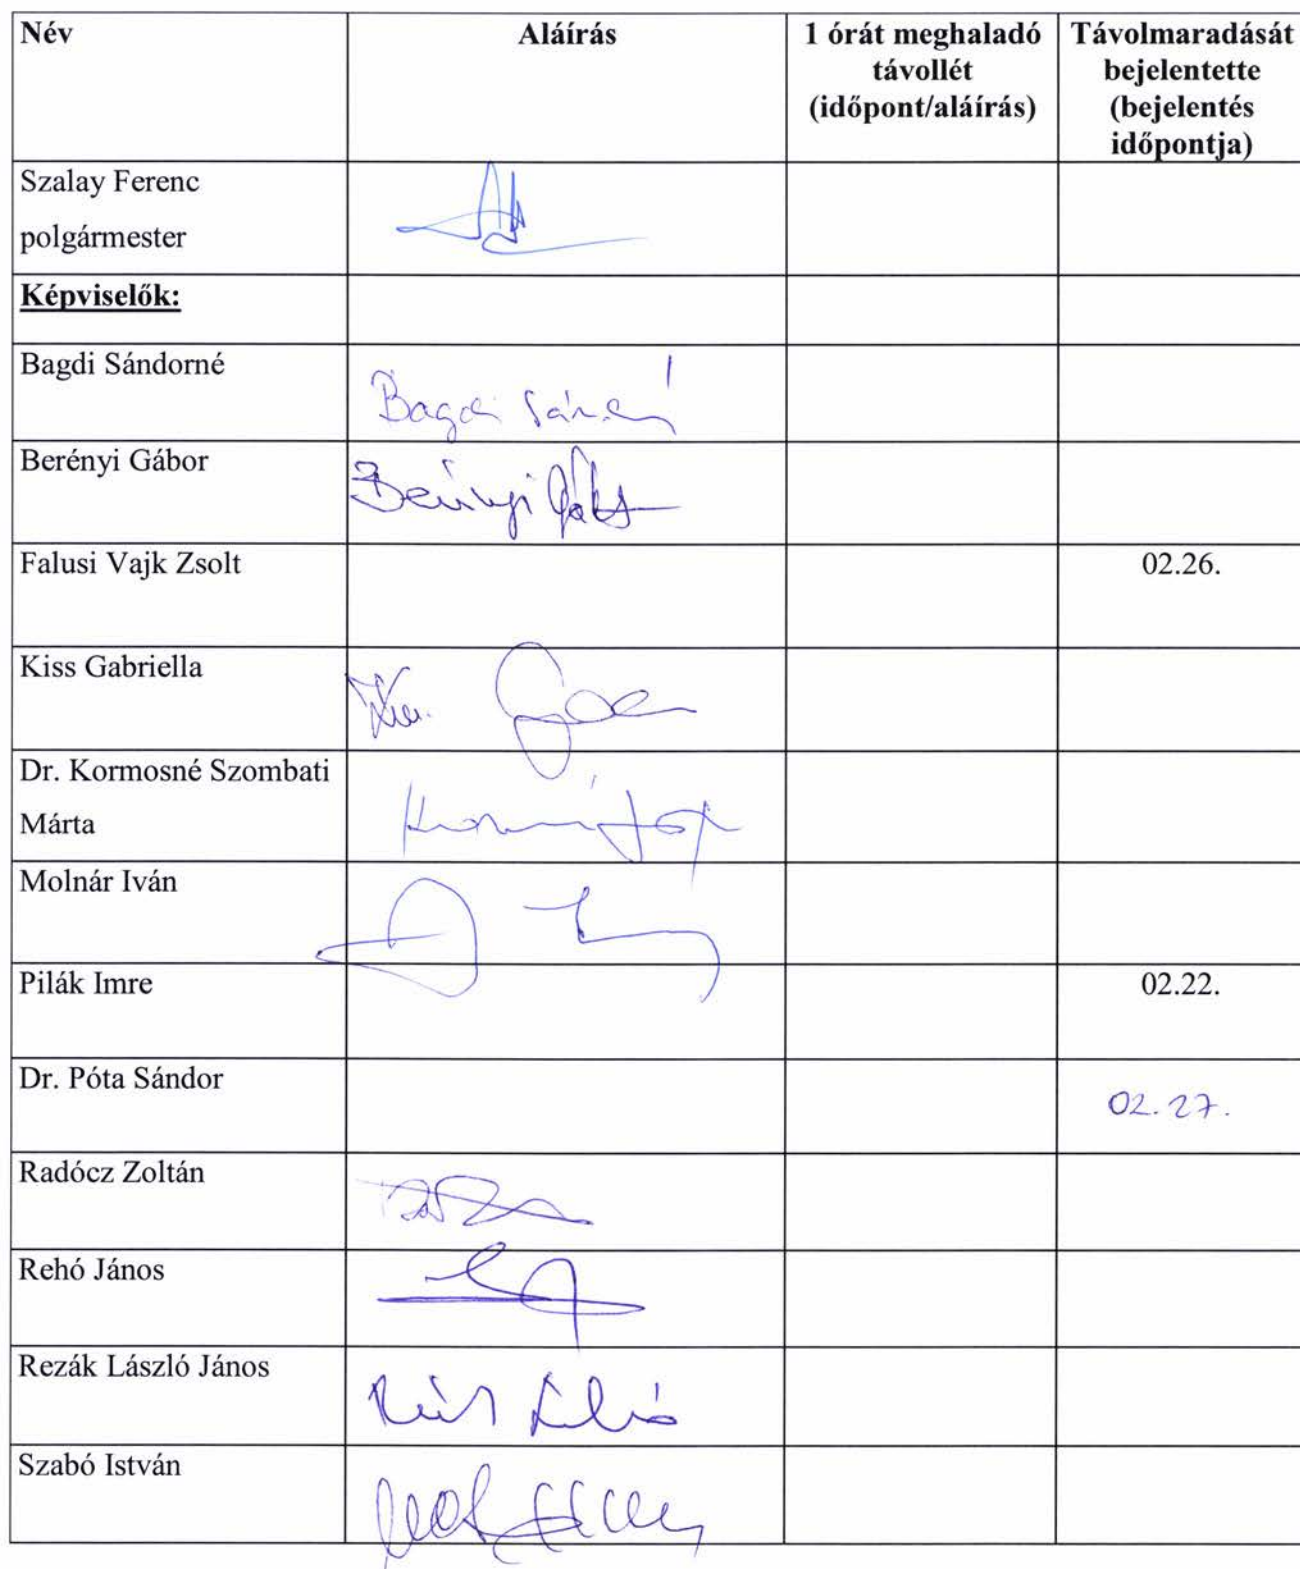 Név Aláírás 1 órát meghaladó Távolmaradását
távollét bejelentette
(időpont/aláírás) (bejelentés
időpontja)
Szalay Ferenc
polgármester
Képviselők:
Bagdi Sándorné
Bagdi
Berényi Gábor
Berényi Gábor
Falusi Vajk Zsolt 02.26.
Kiss Gabriella
Dr. Kormosné Szombati
Márta
Molnár Iván
Pilák Imre 02.22.
Dr. Póta Sándor 02.27.
Radócz Zoltán
Rehó János
Rezák László János
Szabó István